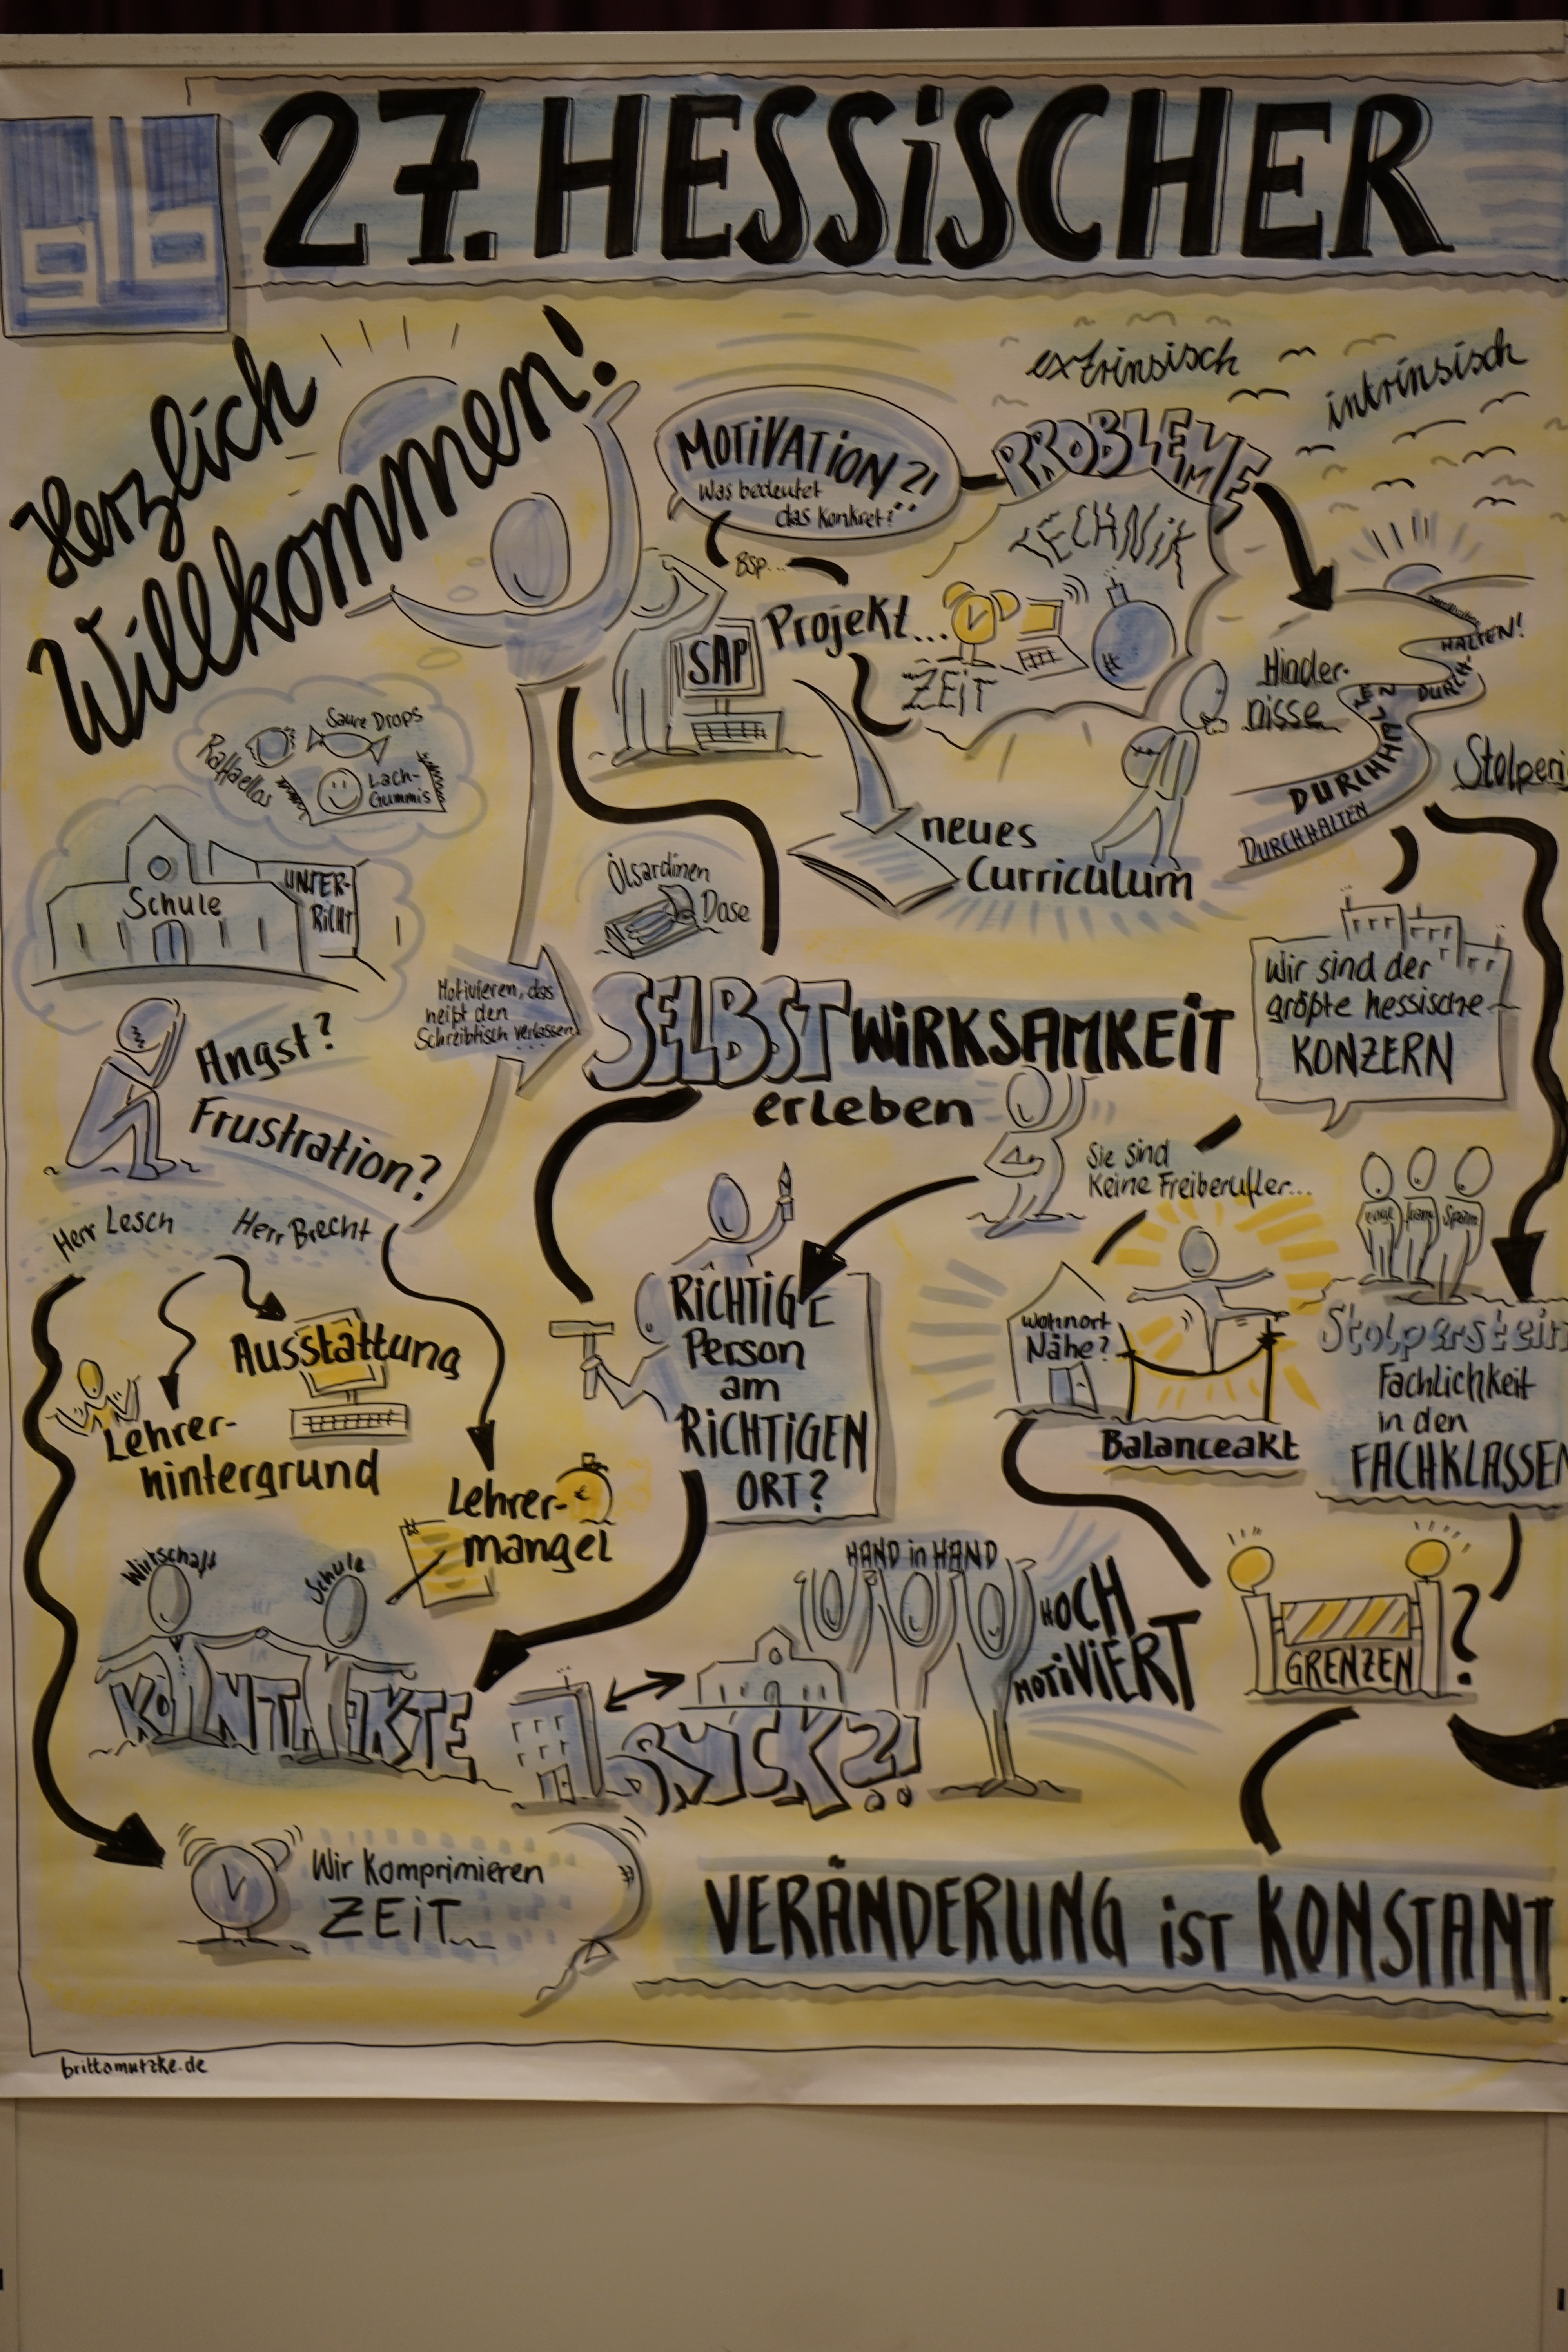 27. HESSISCHER
Herzlich
Willkommen!
MOTIVATION?!
Was bedeutet
das konkret?
BSP...
PROBLEME
extrinsisch
intrinsisch
TECHNIK
Projekt...
ZEIT
SAP
neues
Curriculum
Hinder-
nisse
DURCHHALTEN
DURCHHALTEN
DURCH-
HALTEN!
Stolperi
Saure Drops
Raffaellos
Lach-
Gummis
Schule
UNTER-
RICHT
Ölsardinen
Dose
Angst?
Frustration?
Motivieren, das
heißt den
Schreibtisch verlassen...
SELBSTWIRKSAMKEIT
erleben
Wir sind der
größte hessische
KONZERN
Sie sind
Keine Freiberufler...
Herr Lesch
Herr Brecht
Ausstattung
Lehrer-
hintergrund
Lehrer-
mangel
RICHTIGE
Person
am
RICHTIGEN
ORT?
Wohnort
Nähe?
Balanceakt
Stolperstein
Fachlichkeit
in den
FACHKLASSEN
Wirtschaft
Schule
KONTAKTE
BRÜCK?!
HAND in HAND
HOCH
MOTIVIERT
GRENZEN?
Wir Komprimieren
ZEIT...
VERÄNDERUNG iST KONSTANT.
brittamutzke.de